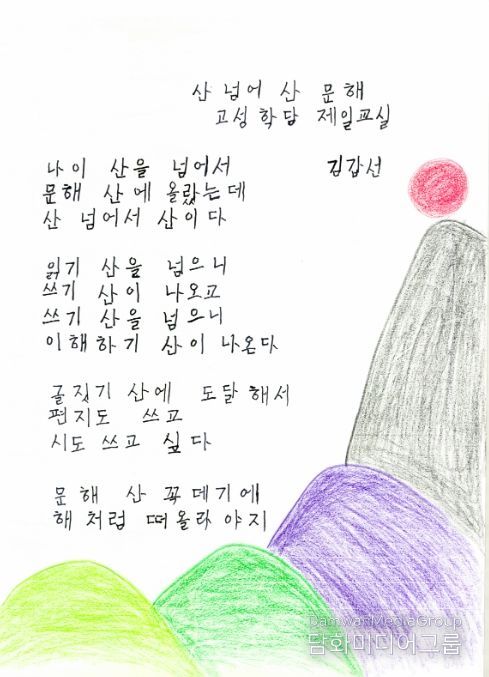 산 넘어 산 문해
고성학당 제일교실
김갑선
나이 산을 넘어서
문해 산에 올랐는데
산 넘어서 산이다
읽기 산을 넘으니
쓰기 산이 나오고
쓰기 산을 넘으니
이해하기 산이 나온다
글짓기 산에 도달해서
편지도 쓰고
시도 쓰고 싶다
문해 산 꼭데기에
해처럼 떠올라야지
DamwhaMediaGroup
담화미디어그룹